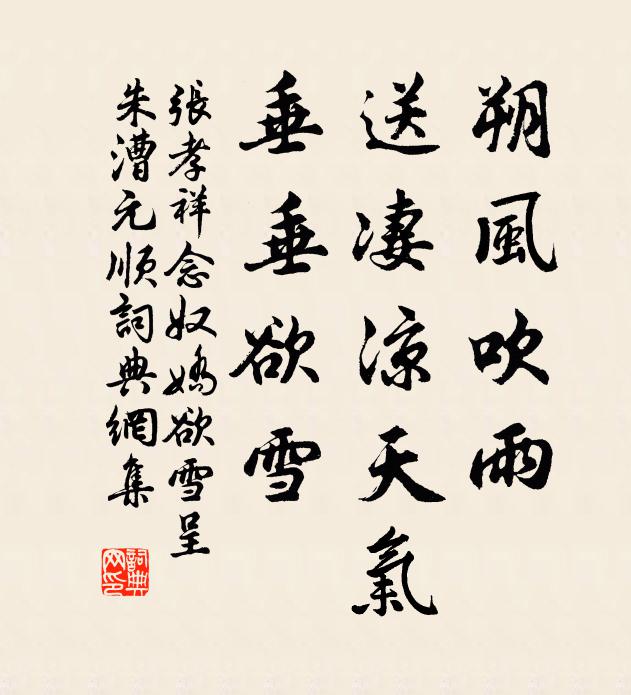 朔風吹雨
送凄涼天氣
垂垂欲雪
張孝祥念奴嬌欲雪呈
朱漕元順詞典網集
詞典
网印